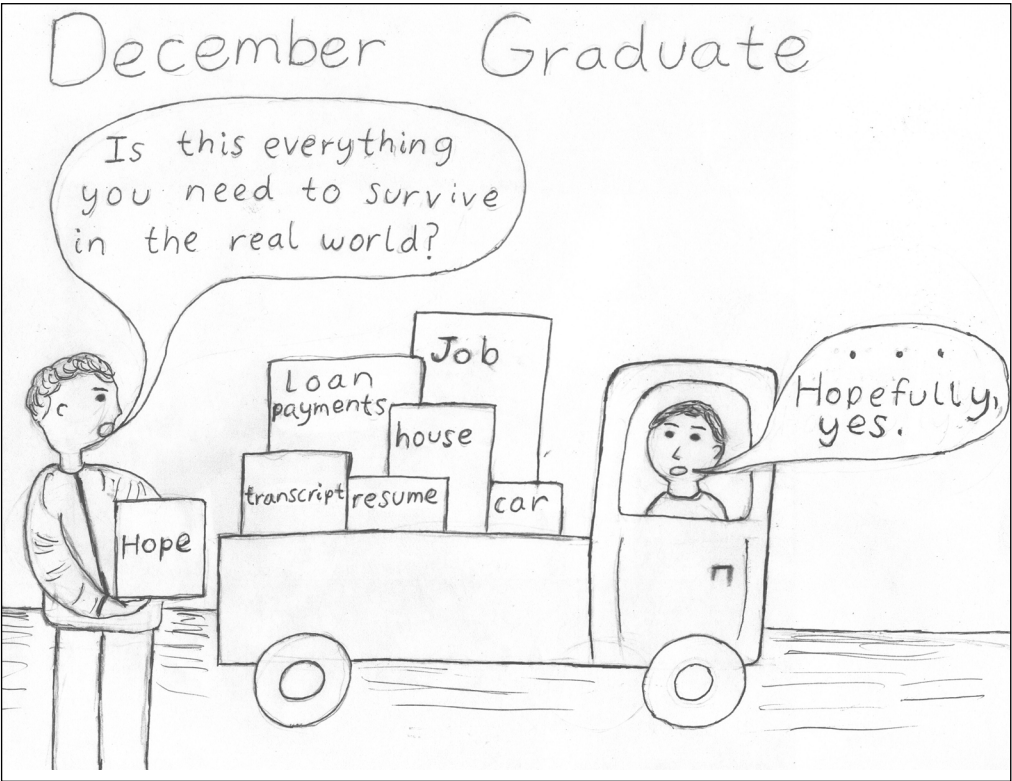 December Graduate
Is this everything
you need to survive
in the real world?
Job
Loan
payments
house
transcript
resume
car
Hope
. . .
Hopefully,
yes.